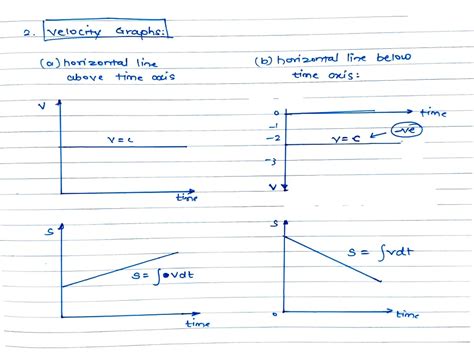 2. Velocity Graphs:
(a) horizontal line
above time axis
(b) horizontal line below
time axis:
V
V = c
time
0
-1
-2
-3
V
time
V = c
-ve
S
S = ∫vdt
time
S
S = ∫vdt
0
time